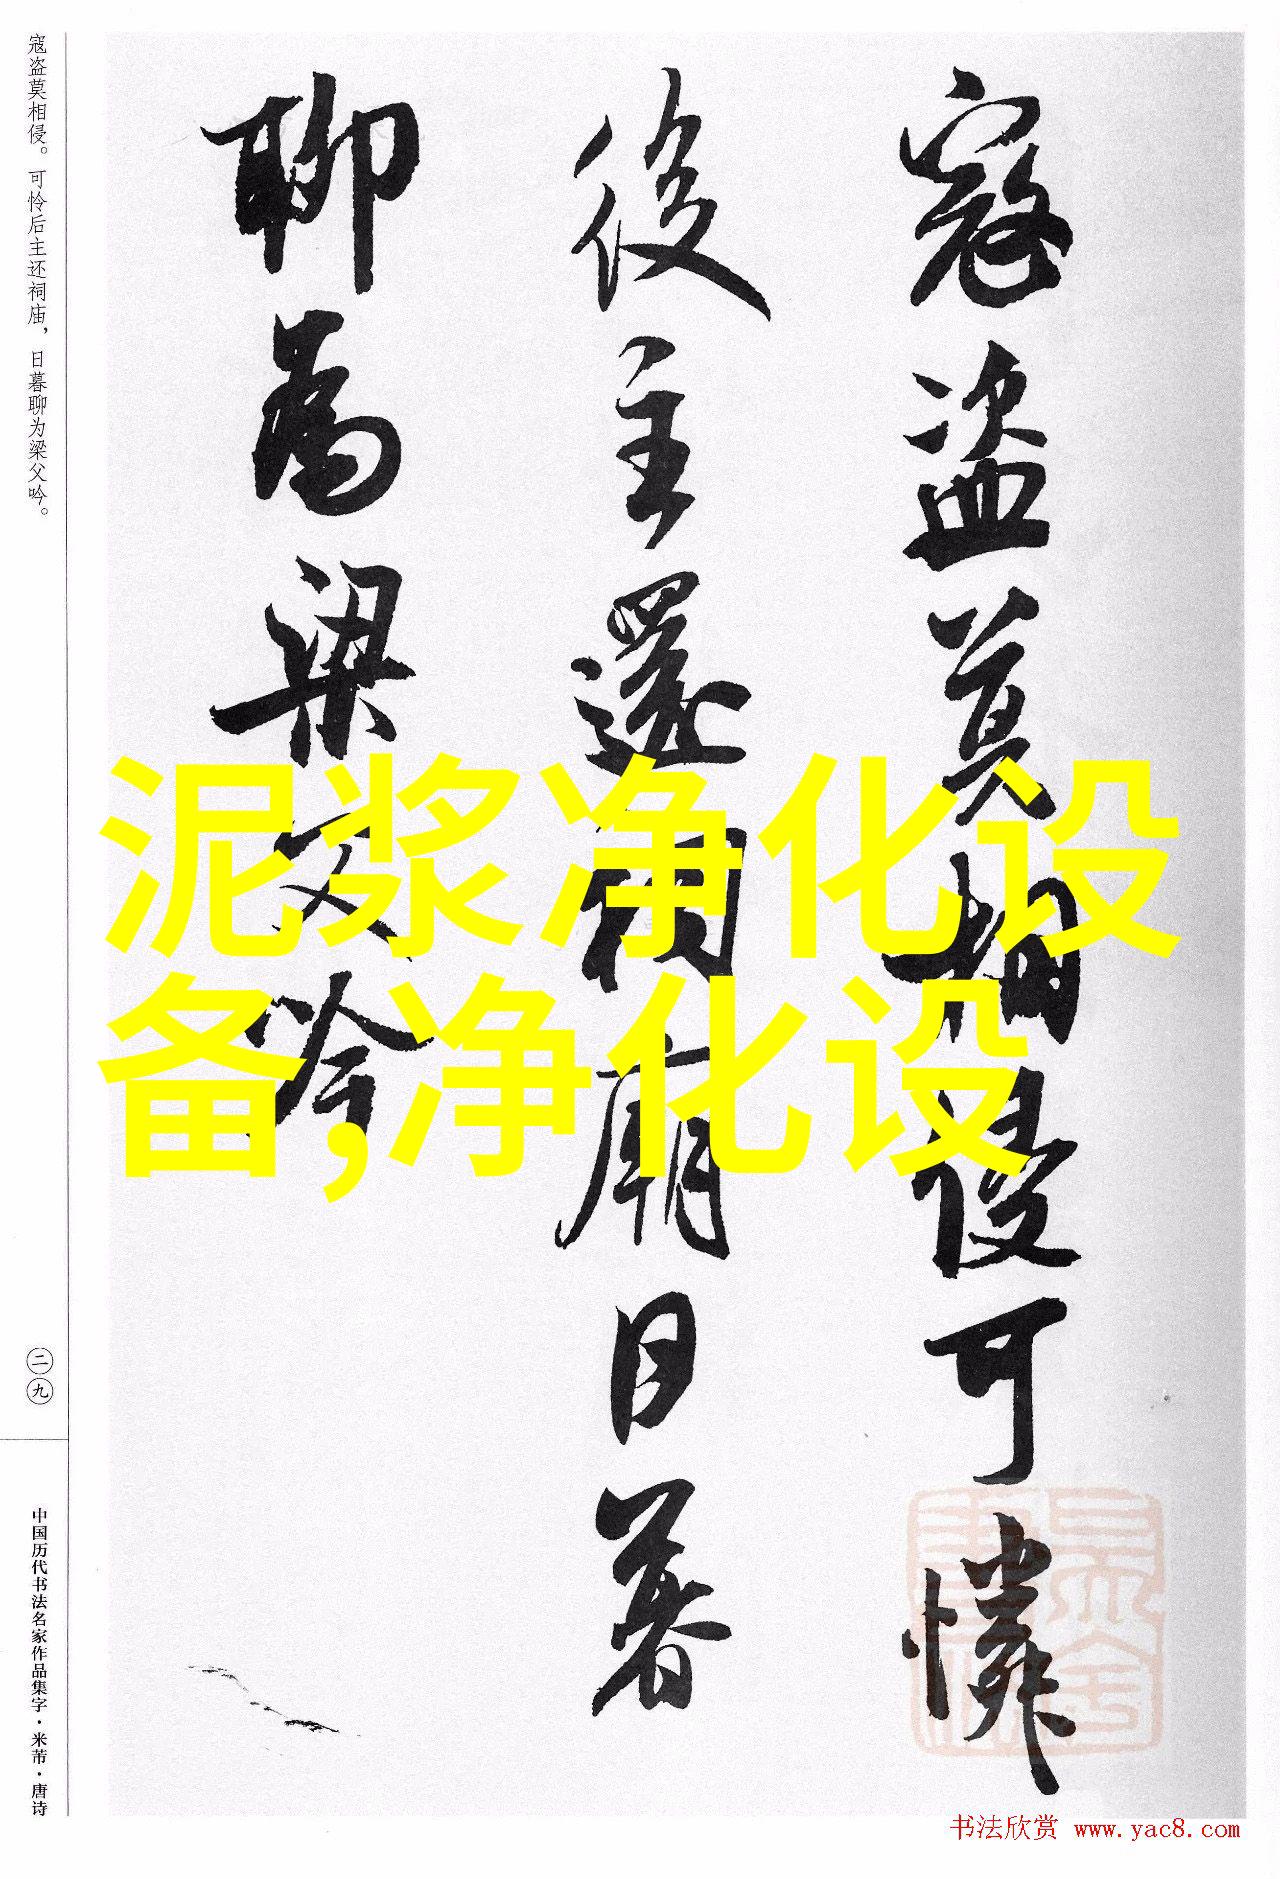 寇盗莫相侵可憐
後主還祠廟日暮
聊為梁父吟
泥浆净化设
备,净化设
寇盗莫相侵。可怜后主还祠庙，日暮聊为梁父吟。
二九
中国历代书法名家作品集字·米芾·唐诗
书法欣赏 www.yac8.com